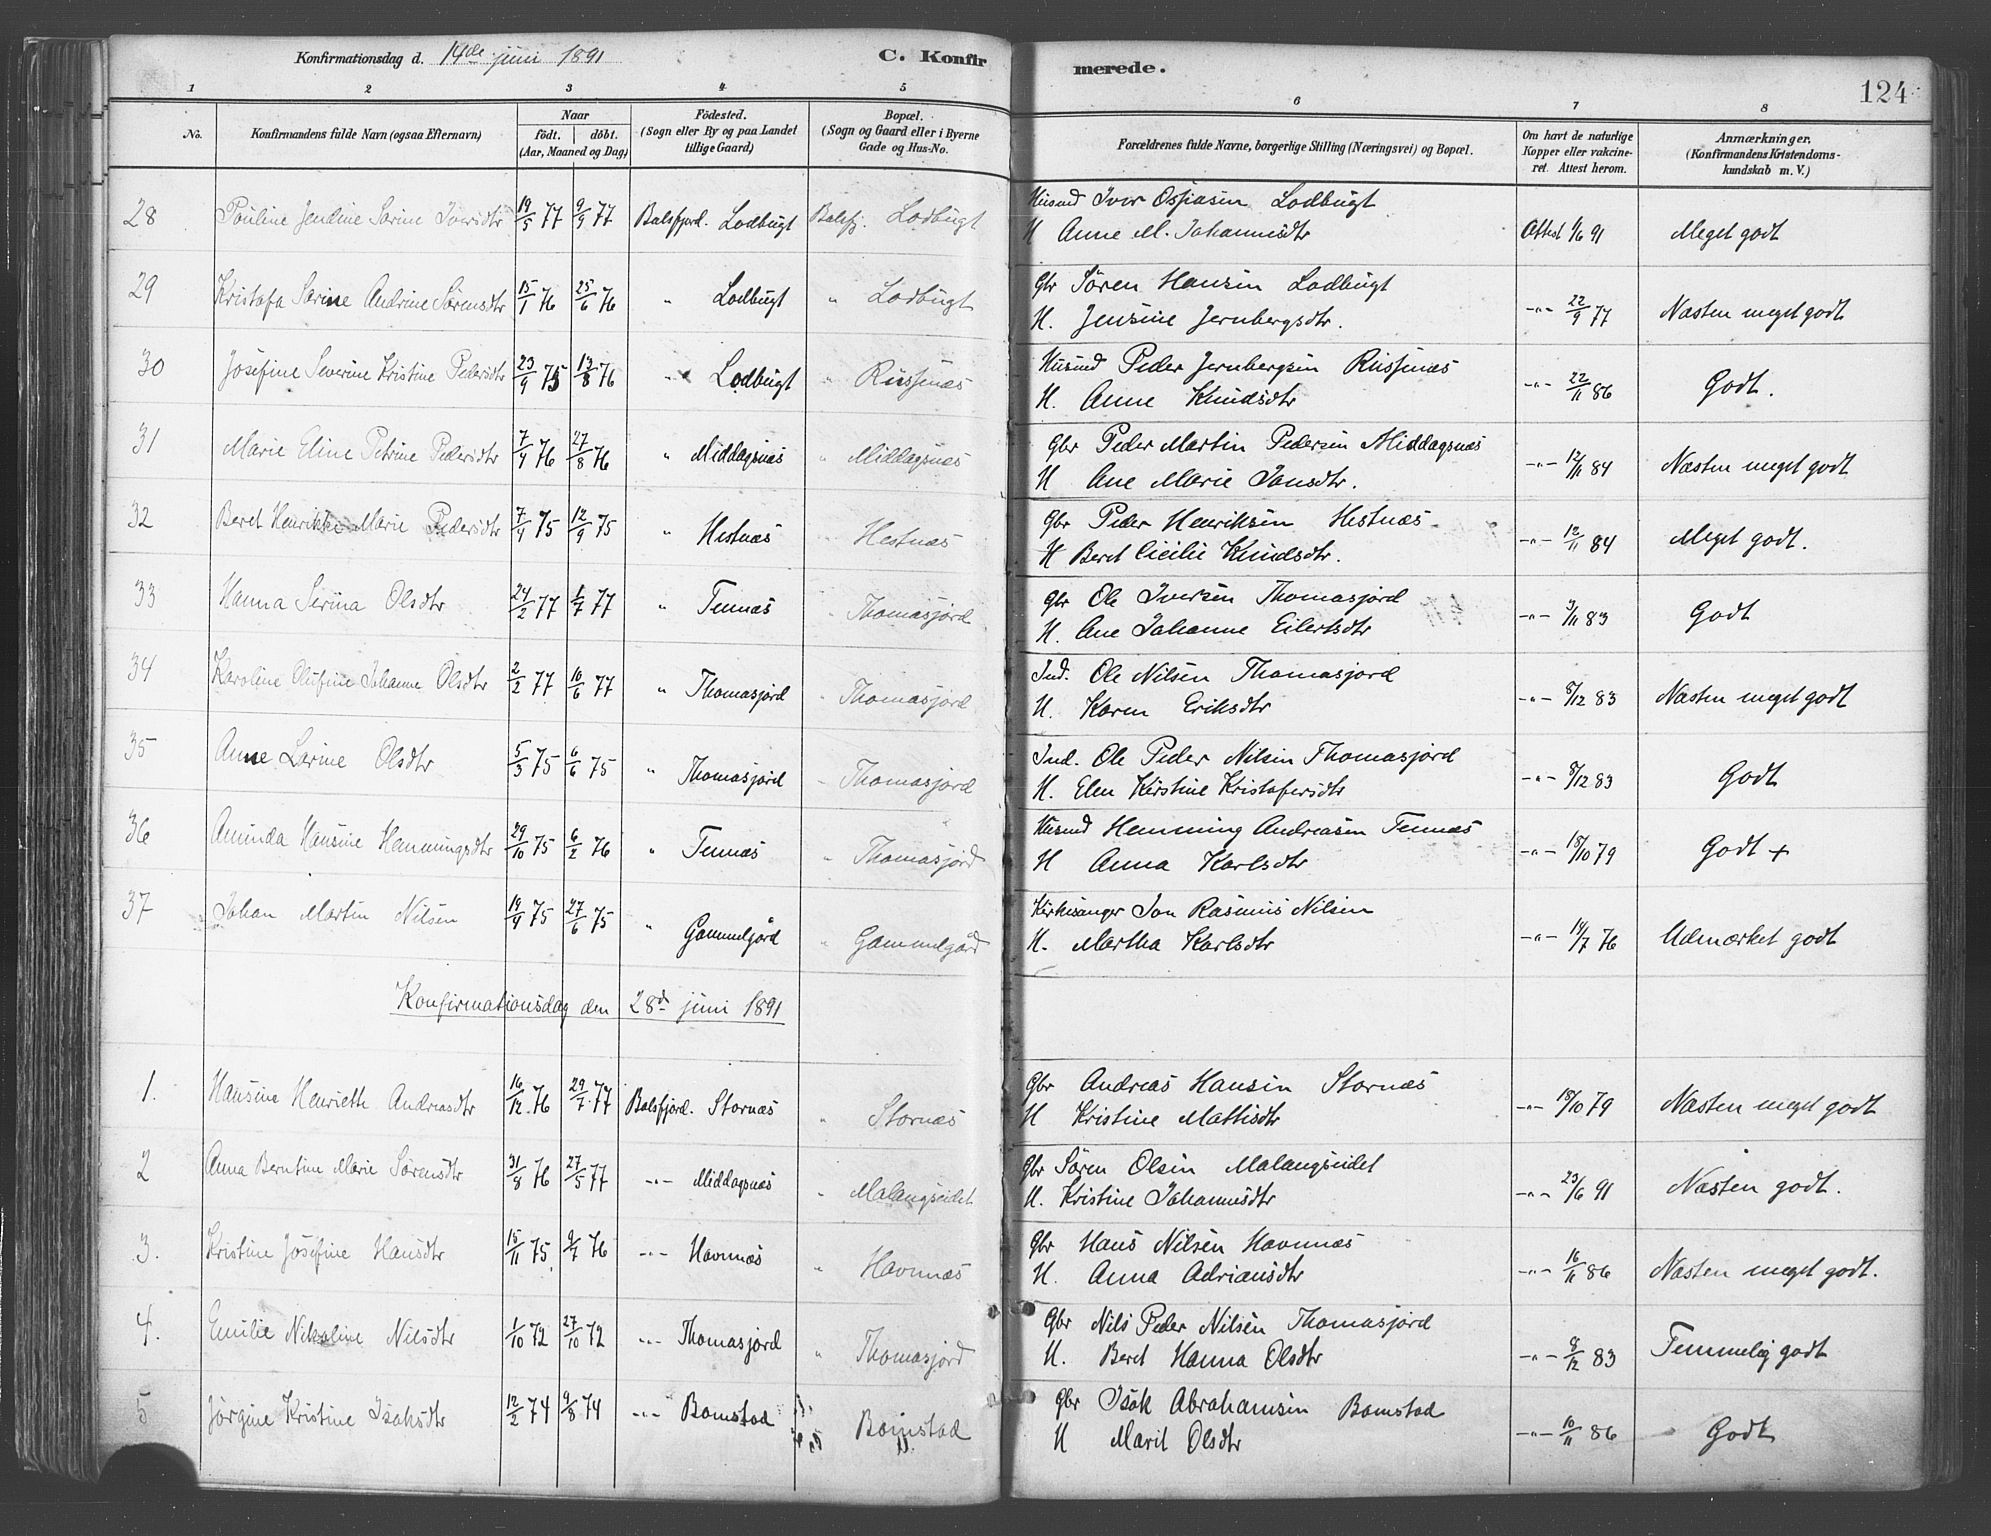 Konfirmationsdag d. 14de juni 1891 C. Konfirmerede. 124
1 2 3 4 5 6 7 8
No. Konfirmandens fulde Navn (ogsaa Efternavn) Naar födt. döbt. (Aar, Maaned og Dag) Födested. (Sogn eller By og paa Landet tillige Gaard) Bopæl. (Sogn og Gaard eller i Byerne Gade og Hus-No. Forældrenes fulde Navne, borgerlige Stilling (Næringsvei) og Bopæl. Om havt de naturlige Kopper eller vakcineret. Attest herom. Anmærkninger. (Konfirmandens Kristendomskundskab m. V.)
28 Pouline Jendine Sarine Iversdtr 19/5 77 9/9 77 Balsfjord. Lodbugt Balsfj. Lodbugt Husmd Iver Osjasen Lodbugt Attest 1/6 91 Meget godt
H Anne M. Johannesdtr
29 Kristofa Sarine Andrine Sörensdtr 15/1 76 25/6 76 " Lodbugt " Lodbugt Gbr Sören Hansen Lodbugt -"- 22/9 77 Næsten meget godt
H. Jensine Jernbergsdtr.
30 Josefine Severine Kristine Pedersdtr 23/9 75 13/8 76 " Lodbugt " Russenæs Husmd Peder Jernbergsen Russenæs -"- 22/11 86 Godt.
H. Anne Knudsdtr
31 Marie Eline Petrine Pedersdtr 7/4 76 27/8 76 " Middagsnæs " Middagsnæs Gbr Peder Martin Pedersen Middagsnæs -"- 12/11 84 Næsten meget godt
H Ane Marie Jansdtr.
32 Beret Henrikke Marie Pedersdtr 7/4 75 12/9 75 " Hestnæs " Hestnæs Gbr Peder Henriksen Hestnæs -"- 12/11 84 Meget godt.
H Beret Cicilie Knudsdtr.
33 Hanna Serina Olsdtr 24/2 77 1/7 77 " Tennæs " Thomasjord Gbr Ole Iversen Thomasjord -"- 3/11 83 Godt
H. Ane Johanne Eilertsdtr
34 Karoline Olufine Johanne Olsdtr 2/2 77 10/6 77 " Thomasjord " Thomasjord Ind. Ole Nilsen Thomasjord -"- 8/12 83 Næsten meget godt
H. Karen Eriksdtr
35 Anne Larine Olsdtr 5/3 75 6/6 75 " Thomasjord " Thomasjord Ind. Ole Peder Nilsen Thomasjord -"- 8/12 83 Godt
H. Elen Kirstine Kristofersdtr
36 Aminda Hansine Hemmingsdtr 29/10 75 6/2 76 " Tennæs " Thomasjord Husmd Hemming Andreasen Tennæs -"- 18/10 79 Godt +
H Anna Karlsdtr
37 Johan Martin Nilsen 19/4 75 27/6 75 " Gammelgård " Gammelgård Kirkesanger Jon Rasmus Nilsen -"- 14/7 76 Udmærket godt
H. Martha Karlsdtr
Konfirmationsdag den 28d juni 1891
1. Hansine Henriette Andreasdtr 16/12 76 29/7 77 Balsfjord. Stornæs " Stornæs Gbr Andreas Hansen Stornæs -"- 18/10 79 Næsten meget godt
H Kristine Mattisdtr
2 Anna Berntine Marie Sörensdtr 31/8 76 27/5 77 -"- Middagsnæs " Malangseidet Gbr Sören Olsen Malangseidet -"- 23/6 91 Næsten godt.
H. Kristine Johannesdtr
3. Kristine Josefine Hansdtr 15/11 75 9/7 76 -"- Havnnæs " Havnnæs Gbr Hans Nilsen Havnnæs -"- 16/11 86 Næsten meget godt.
H. Anna Adriansdtr
4. Emilie Nikoline Nilsdtr 1/10 72 27/10 72 -"- Thomasjord " Thomasjord Gbr Nils Peder Nilsen Thomasjord -"- 8/12 83 Temmelig godt
H. Beret Hanna Olsdtr
5 Jörgine Kristine Isaksdtr 12/2 74 9/8 74 -"- Bomstad Bomstad Gbr Isak Abrahamsen Bomstad -"- 10/11 86 Godt
H Marit Olsdtr